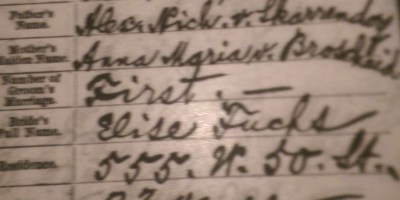 Father's Name. Alex. Nich. v. Skarrenday
Mother's Maiden Name. Anna Maria v. Broscheid
Number of Groom's Marriage. First. —
Bride's Full Name. Elise Fuchs
Residence. 555. W. 50. St.